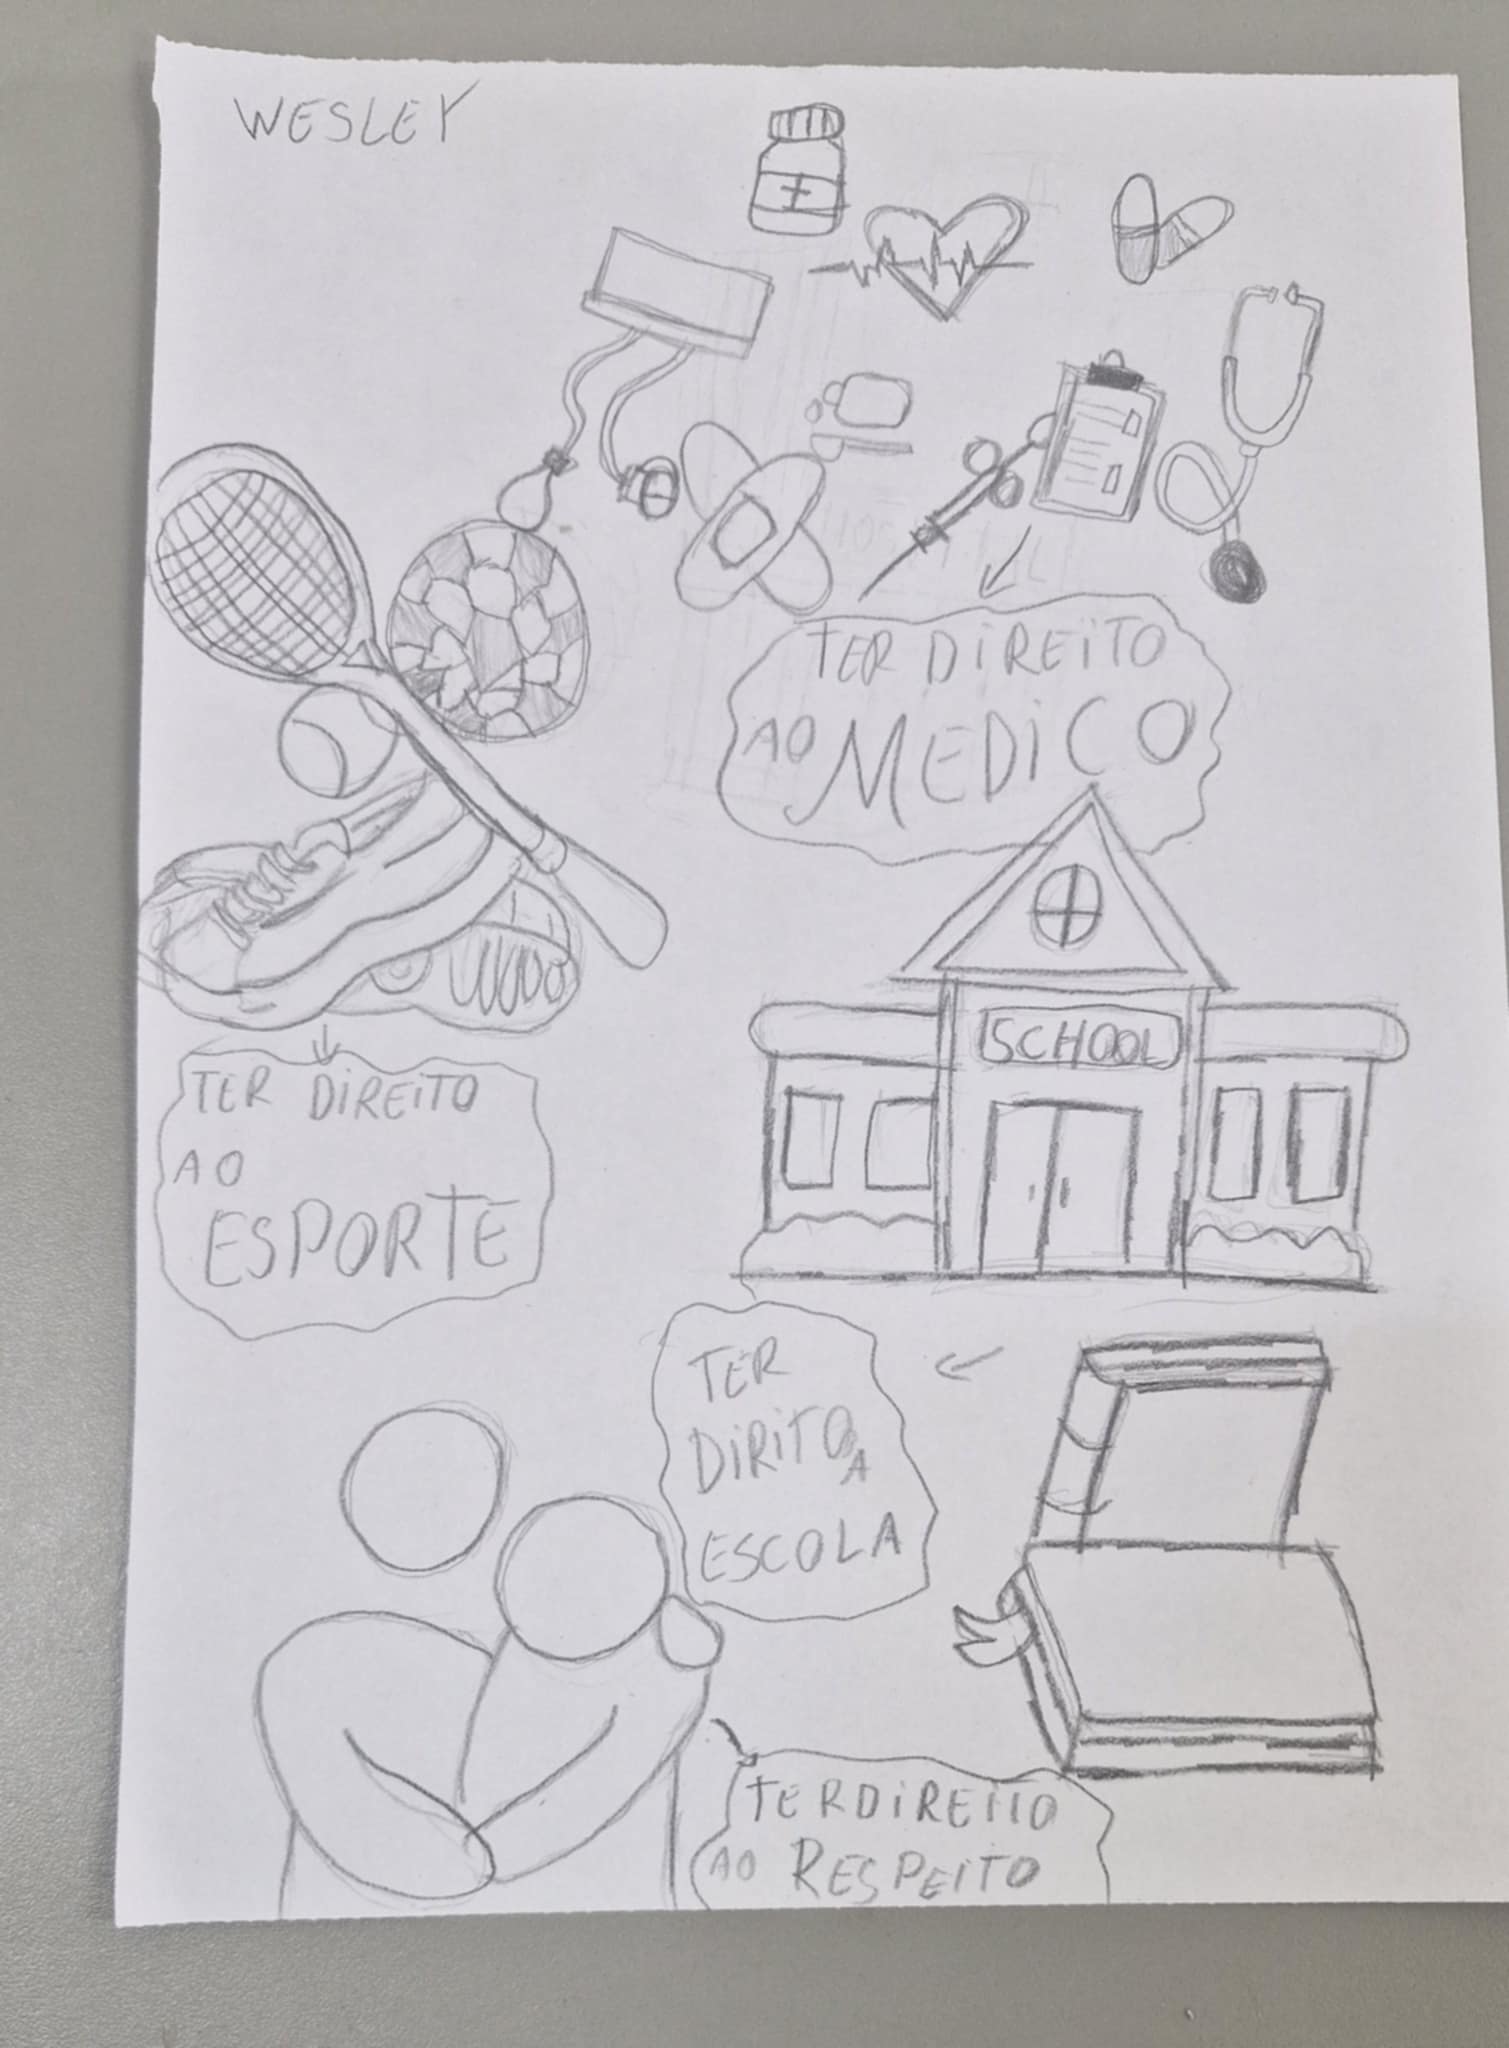 WESLEY
TER DIREITO
AO MEDICO
SCHOOL
TER DIREITO
AO
ESPORTE
TER
DIRITO A
ESCOLA
TER DIREITO
AO RESPEITO